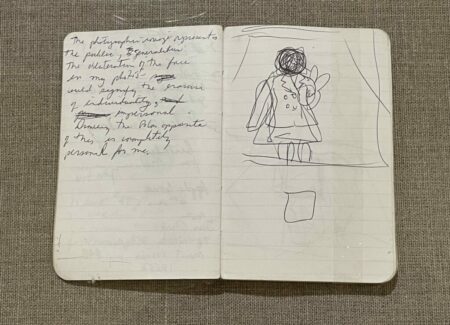 The photographic image represents
the public, generalities
The obliteration of the face
in my photos
could signify the erasure
of individuality,
impersonal.
Drawing the polar opposite
of this is completely
personal for me.